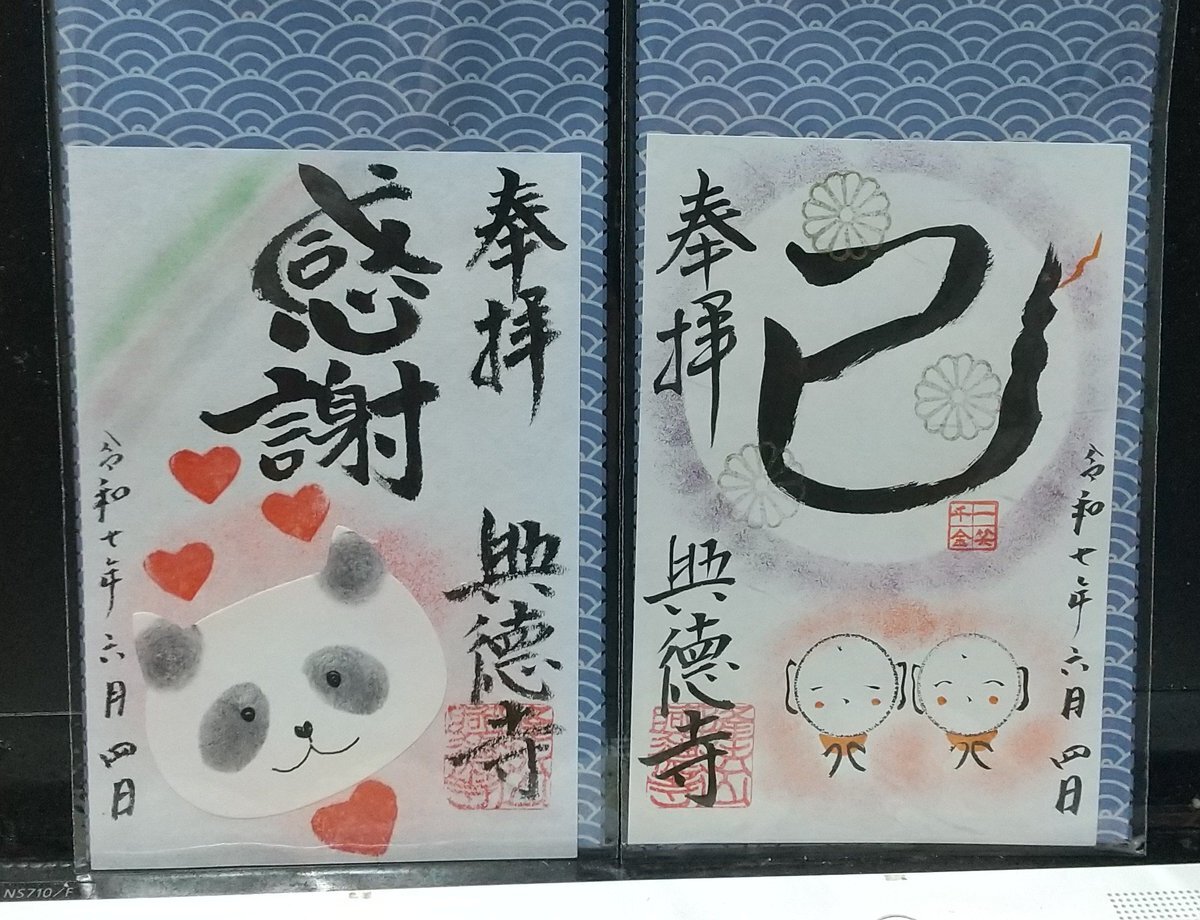 奉拝
感謝
興徳寺
令和七年六月四日
奉拝
巳
一笑
千金
興徳寺
令和七年六月四日
NS710/F